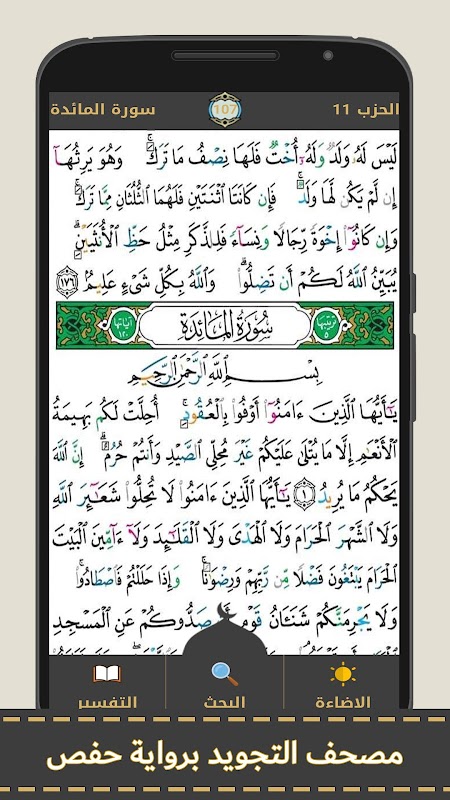 الحزب 11
107
سورة المائدة
لَيْسَ لَهُۥ وَلَدٌ وَلَهُۥٓ أُخْتٌ فَلَهَا نِصْفُ مَا تَرَكَ ۚ وَهُوَ يَرِثُهَآ
إِن لَّمْ يَكُن لَّهَا وَلَدٌ ۚ فَإِن كَانَتَا ٱثْنَتَيْنِ فَلَهُمَا ٱلثُّلُثَانِ مِمَّا تَرَكَ ۚ
وَإِن كَانُوٓا۟ إِخْوَةً رِّجَالًا وَنِسَآءً فَلِلذَّكَرِ مِثْلُ حَظِّ ٱلْأُنثَيَيْنِ ۗ
يُبَيِّنُ ٱللَّهُ لَكُمْ أَن تَضِلُّوا۟ ۗ وَٱللَّهُ بِكُلِّ شَىْءٍ عَلِيمٌۢ ١٧٦
ترتيبها ٥
سُورَةُ الْمَائِدَة
آياتها ١٢٠
بِسْمِ ٱللَّهِ ٱلرَّحْمَٰنِ ٱلرَّحِيمِ
يَٰٓأَيُّهَا ٱلَّذِينَ ءَامَنُوٓا۟ أَوْفُوا۟ بِٱلْعُقُودِ ۚ أُحِلَّتْ لَكُم بَهِيمَةُ
ٱلْأَنْعَٰمِ إِلَّا مَا يُتْلَىٰ عَلَيْكُمْ غَيْرَ مُحِلِّى ٱلصَّيْدِ وَأَنتُمْ حُرُمٌ ۗ إِنَّ ٱللَّهَ
يَحْكُمُ مَا يُرِيدُ ١ يَٰٓأَيُّهَا ٱلَّذِينَ ءَامَنُوا۟ لَا تُحِلُّوا۟ شَعَٰٓئِرَ ٱللَّهِ
وَلَا ٱلشَّهْرَ ٱلْحَرَامَ وَلَا ٱلْهَدْىَ وَلَا ٱلْقَلَٰٓئِدَ وَلَآ ءَآمِّينَ ٱلْبَيْتَ
ٱلْحَرَامَ يَبْتَغُونَ فَضْلًا مِّن رَّبِّهِمْ وَرِضْوَٰنًا ۚ وَإِذَا حَلَلْتُمْ فَٱصْطَادُوا۟ ۚ
وَلَا يَجْرِمَنَّكُمْ شَنَـَٔانُ قَوْمٍ أَن صَدُّوكُمْ عَنِ ٱلْمَسْجِدِ
الاضاءة
البحث
التفسير
مصحف التجويد برواية حفص